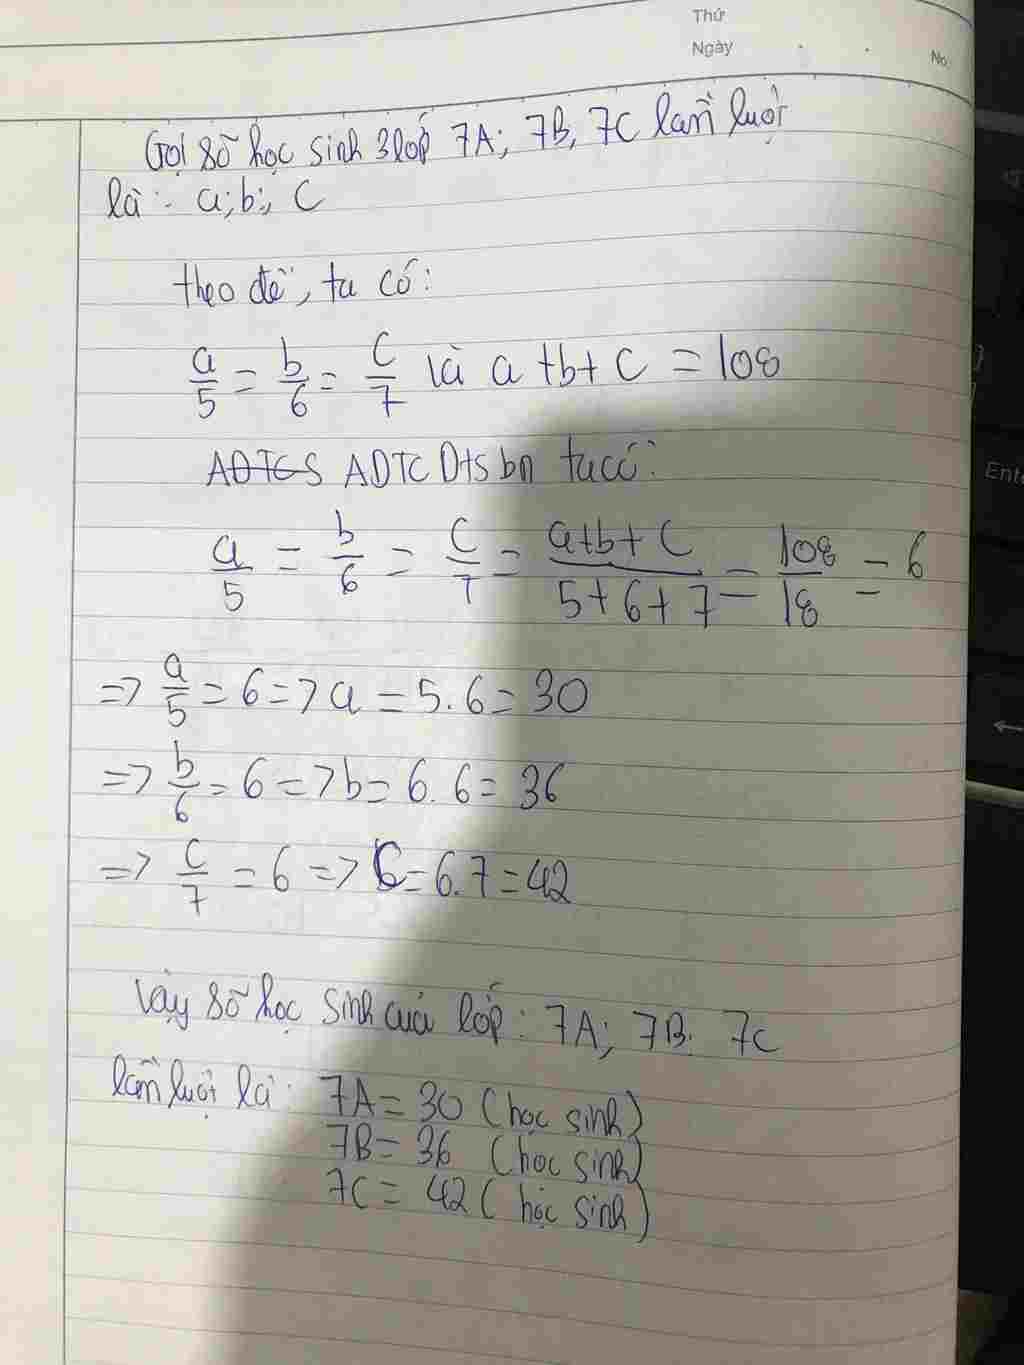 Thứ
Ngày
No.
Gọi số học sinh 3 lớp 7A; 7B, 7C lần lượt
là: a; b; c
theo đề, ta có:
a/5 = b/6 = c/7 là a+b+c = 108
ADTCS ADTC Dts bn ta có:
a/5 = b/6 = c/7 = a+b+c/5+6+7 = 108/18 = 6
=> a/5 = 6 => a = 5.6 = 30
=> b/6 = 6 => b = 6.6 = 36
=> c/7 = 6 => c = 6.7 = 42
Vậy số học sinh của lớp: 7A; 7B; 7C
lần lượt là: 7A = 30 (học sinh)
7B = 36 (học sinh)
7C = 42 (học sinh)
Ente